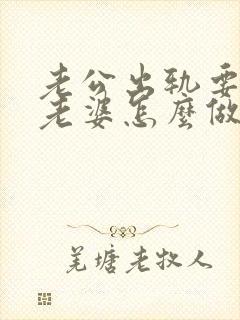 老公出轨要
老婆怎麽做
羌塘老牧人